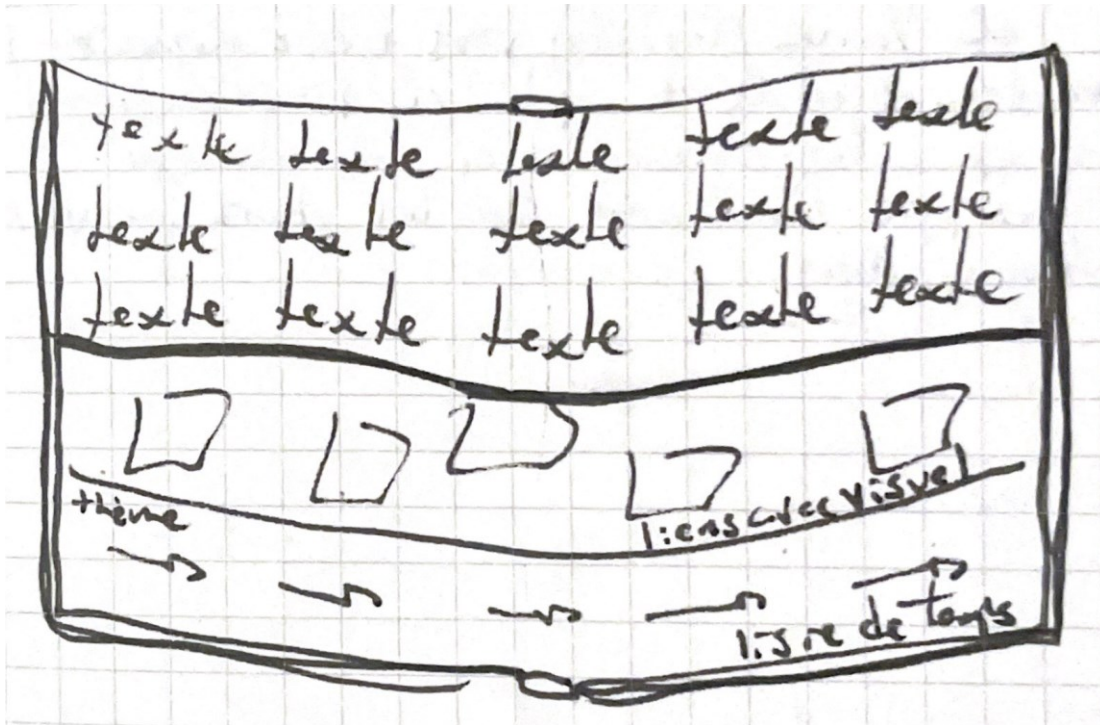 texte texte texte texte texte
texte texte texte texte texte
texte texte texte texte texte
thème
liens avec visuel
ligne de temps